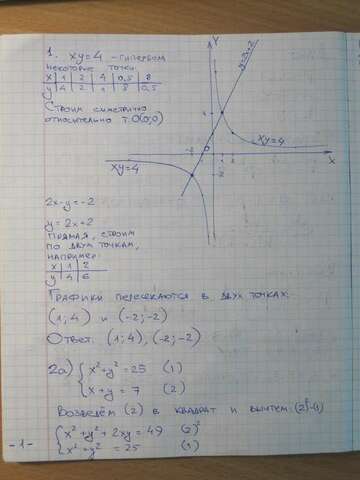 1. xy=4 - гипербола
некоторые точки:
x 1 2 4 0,5 8
y 4 2 1 8 0,5
Строим симметрично
относительно т. O(0;0)
y
y=2x+2
xy=4
x
xy=4
2x-y=-2
y=2x+2
прямая, строим
по двум точкам,
например:
x 1 2
y 4 6
Графики пересекаются в двух точках:
(1;4) и (-2;-2)
Ответ: (1;4), (-2;-2)
2а) { x²+y²=25 (1)
x+y=7 (2)
Возведём (2) в квадрат и вычтем (2)²-(1)
{ x²+y²+2xy=49 (2)²
x²+y²=25 (1)
-1-